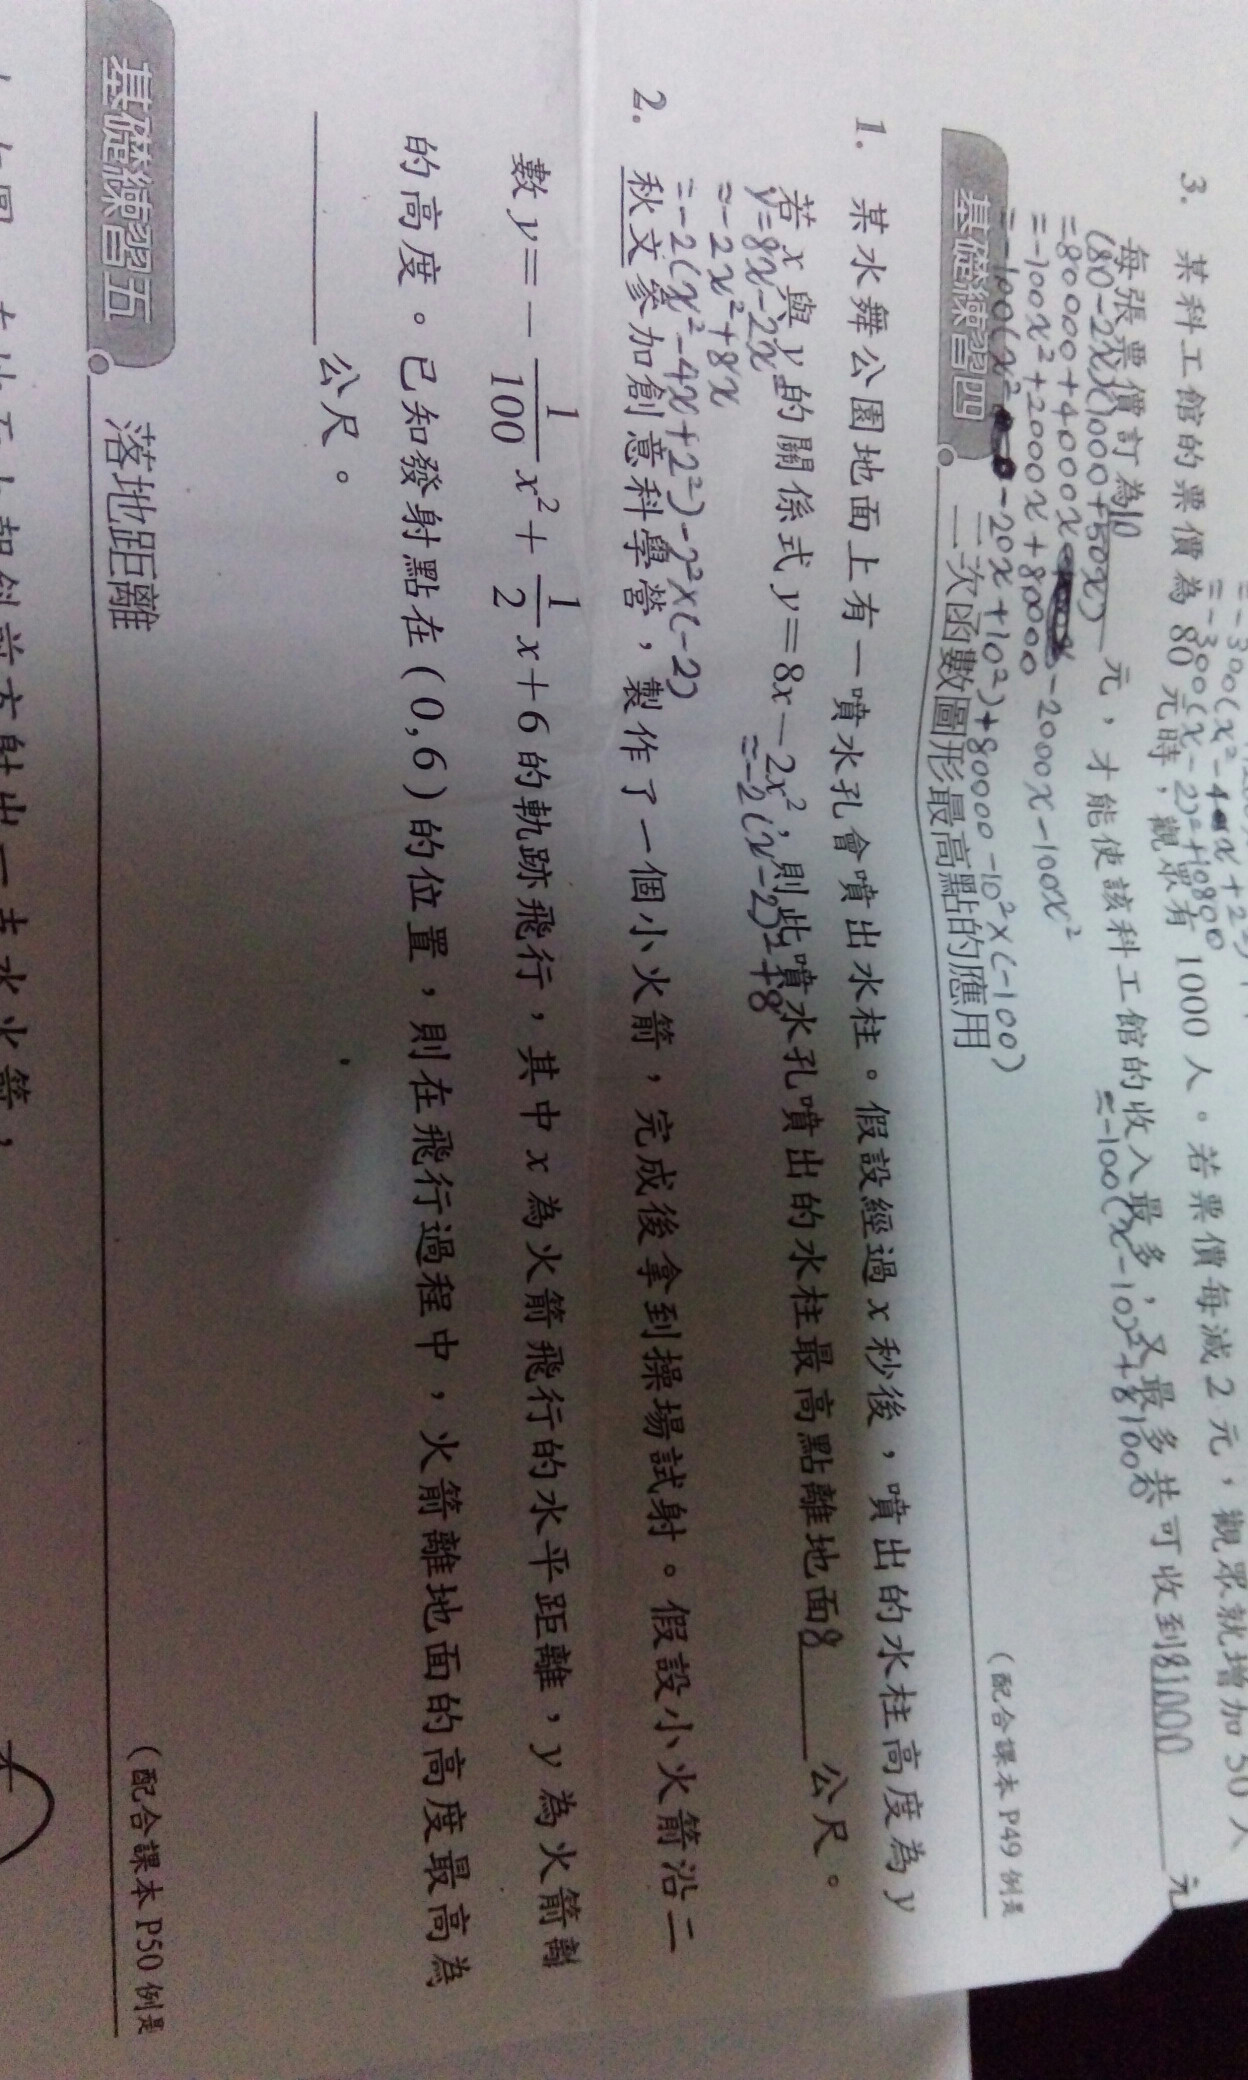 =-300(x²-4x+2²)
=-300(x-2)²+10800
3. 某科工館的票價為 80 元時，觀眾有 1000 人。若票價每減 2 元，觀眾就增加 50 人
每張票價訂為10元，才能使該科工館的收入最多，又最多共可收到81000元
(80-2x)(1000+50x)
=80000+4000x-2000x-100x²
=-100x²+2000x+80000
=-100(x²-20x+10²)+80000-10²×(-100)
=-100(x-10)²+81000
基礎練習四 二次函數圖形最高點的應用 (配合課本 P49 例
1. 某水舞公園地面上有一噴水孔會噴出水柱。假設經過 x 秒後，噴出的水柱高度為 y
若 x 與 y 的關係式 y＝8x－2x²，則此噴水孔噴出的水柱最高點離地面8公尺。
y=8x-2x²
=-2x²+8x
=-2(x²-4x+2²)-2²×(-2)
=-2(x-2)²+8
2. 秋文參加創意科學營，製作了一個小火箭，完成後拿到操場試射。假設小火箭沿二
數 y＝－1/100 x²＋1/2 x＋6 的軌跡飛行，其中 x 為火箭飛行的水平距離，y 為火箭離
的高度。已知發射點在 (0,6) 的位置，則在飛行過程中，火箭離地面的高度最高為
公尺。
基礎練習五 落地距離 (配合課本 P50 例